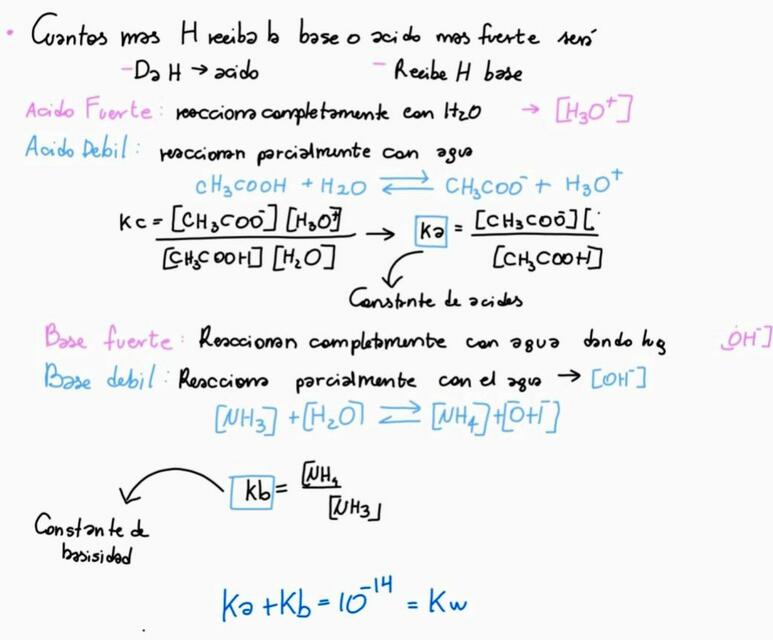 • Cuantos mas H reciba la base o acido mas fuerte será
- Da H → acido - Recibe H base
Acido Fuerte: reacciona completamente con H2O → [H3O+]
Acido Debil: reaccionan parcialmente con agua
CH3COOH + H2O ⇌ CH3COO- + H3O+
Kc = [CH3COO-] [H3O+] / [CH3COOH] [H2O] → Ka = [CH3COO-] [ / [CH3COOH]
Constante de acides
Base fuerte: Reaccionan completamente con agua dando lug OH-]
Base debil: Reacciona parcialmente con el agua → [OH-]
[NH3] + [H2O] ⇌ [NH4] + [OH-]
Kb = [NH4 / [NH3]
Constante de
basisidad
Ka + Kb = 10^-14 = Kw